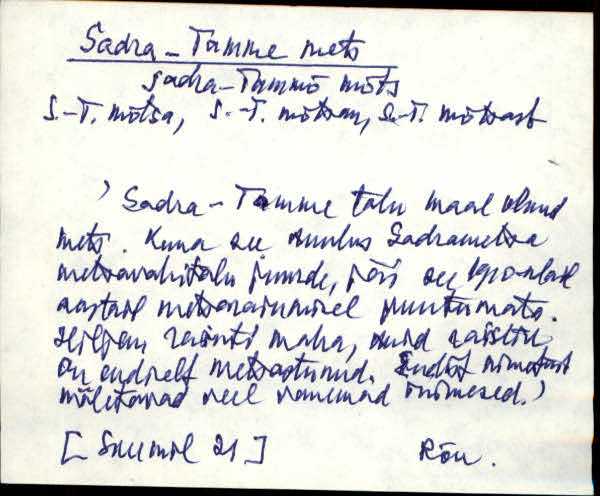 Sadra-Tamme mets
sadra-Tammõ mõts
S.-T. mõtsa, S.-T. mõtsan, S.-T. mõtsast
Sadra-Tamme talu maal olnud
mets. Kuna see kuulus Sadrametsa
metsavahitalu juurde, jäi see
aastail metsaraiumisel puutumata.
Hiljem raiuti maha, kuid raiestik
on endiselt metsastunud. Endist nimetust
mäletavad veel vanemad inimesed.)
[Saumil 21] Rõu.